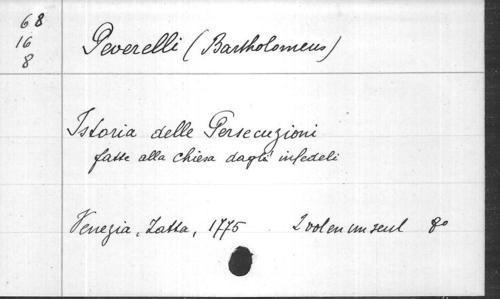 68
16
8
Peverelli (Bartholomeus)
Istoria delle Persecuzioni
fatte alla chiesa dagli infedeli
Venezia, Zatta, 1775 2 vol en un seul 8o